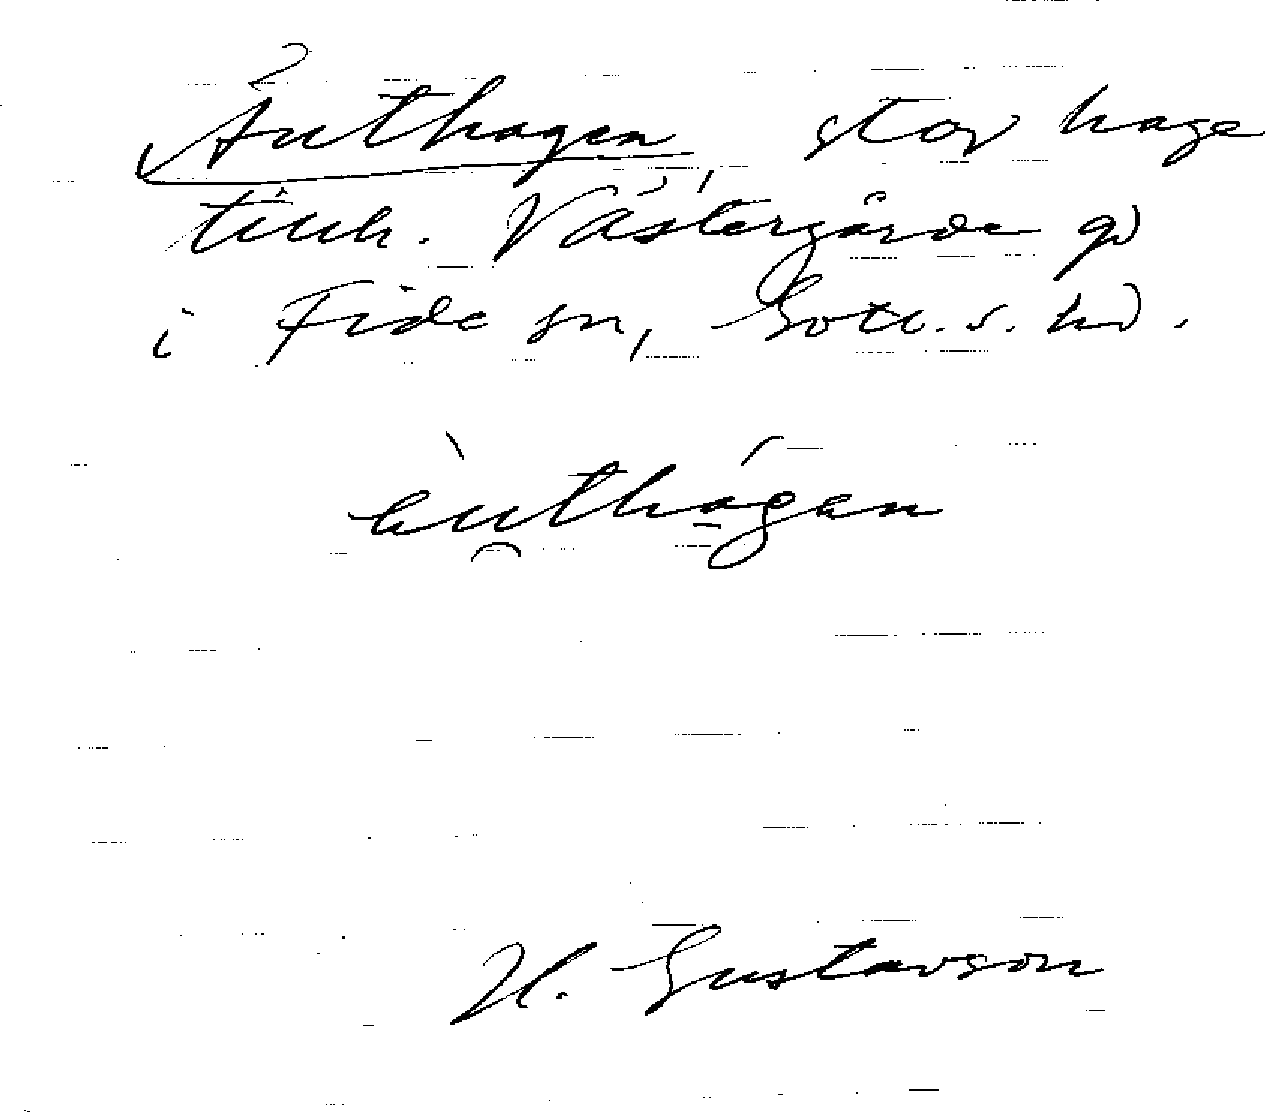 Änthagen, stor hage
tillh. Västergårde gd
i Fide sn, Gotl. s. hd.
ä̀nthágen
H. Gustavson